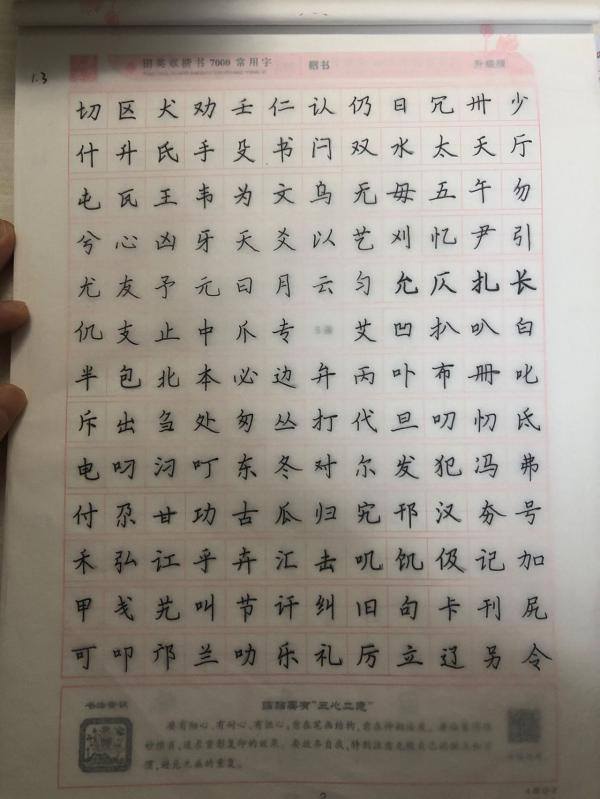 1.3
田英章楷书7000常用字 楷书 升级版
切区犬劝壬仁认仍日冗卅少
什升氏手殳书闩双水太天厅
屯瓦王韦为文乌无毋五午勿
兮心凶牙夭爻以艺刈忆尹引
尤友予元曰月云匀允仄扎长
仉支止中爪专 艾凹扒叭白
半包北本必边弁丙卟布册叱
斥出刍处匆丛打代旦叨忉氐
电叼汈叮东冬对尔发犯冯弗
付尕甘功古瓜归宄邗汉夯号
禾弘讧乎卉汇击叽饥伋记加
甲戋艽叫节讦纠旧句卡刊尻
可叩邝兰叻乐礼厉立辽另令
书法常识 临帖要有“三心二意”
要有细心、有耐心、有恒心,意在笔画结构,意在
2